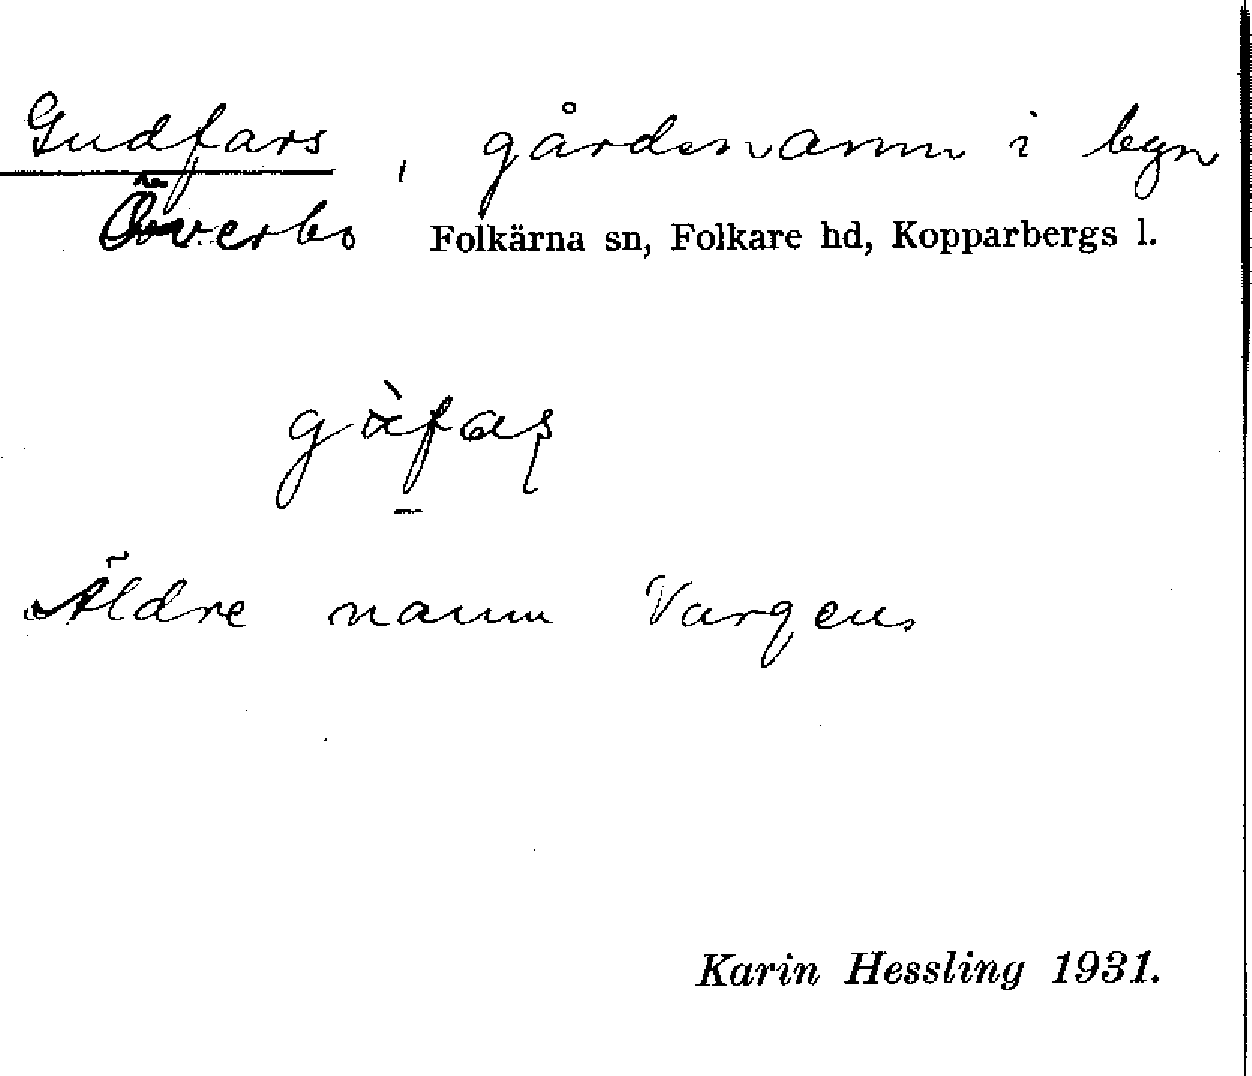 Gudfars, gårdsnamn i byn
Överbo Folkärna sn, Folkare hd, Kopparbergs l.
Äldre namn Vargens
Karin Hessling 1931.